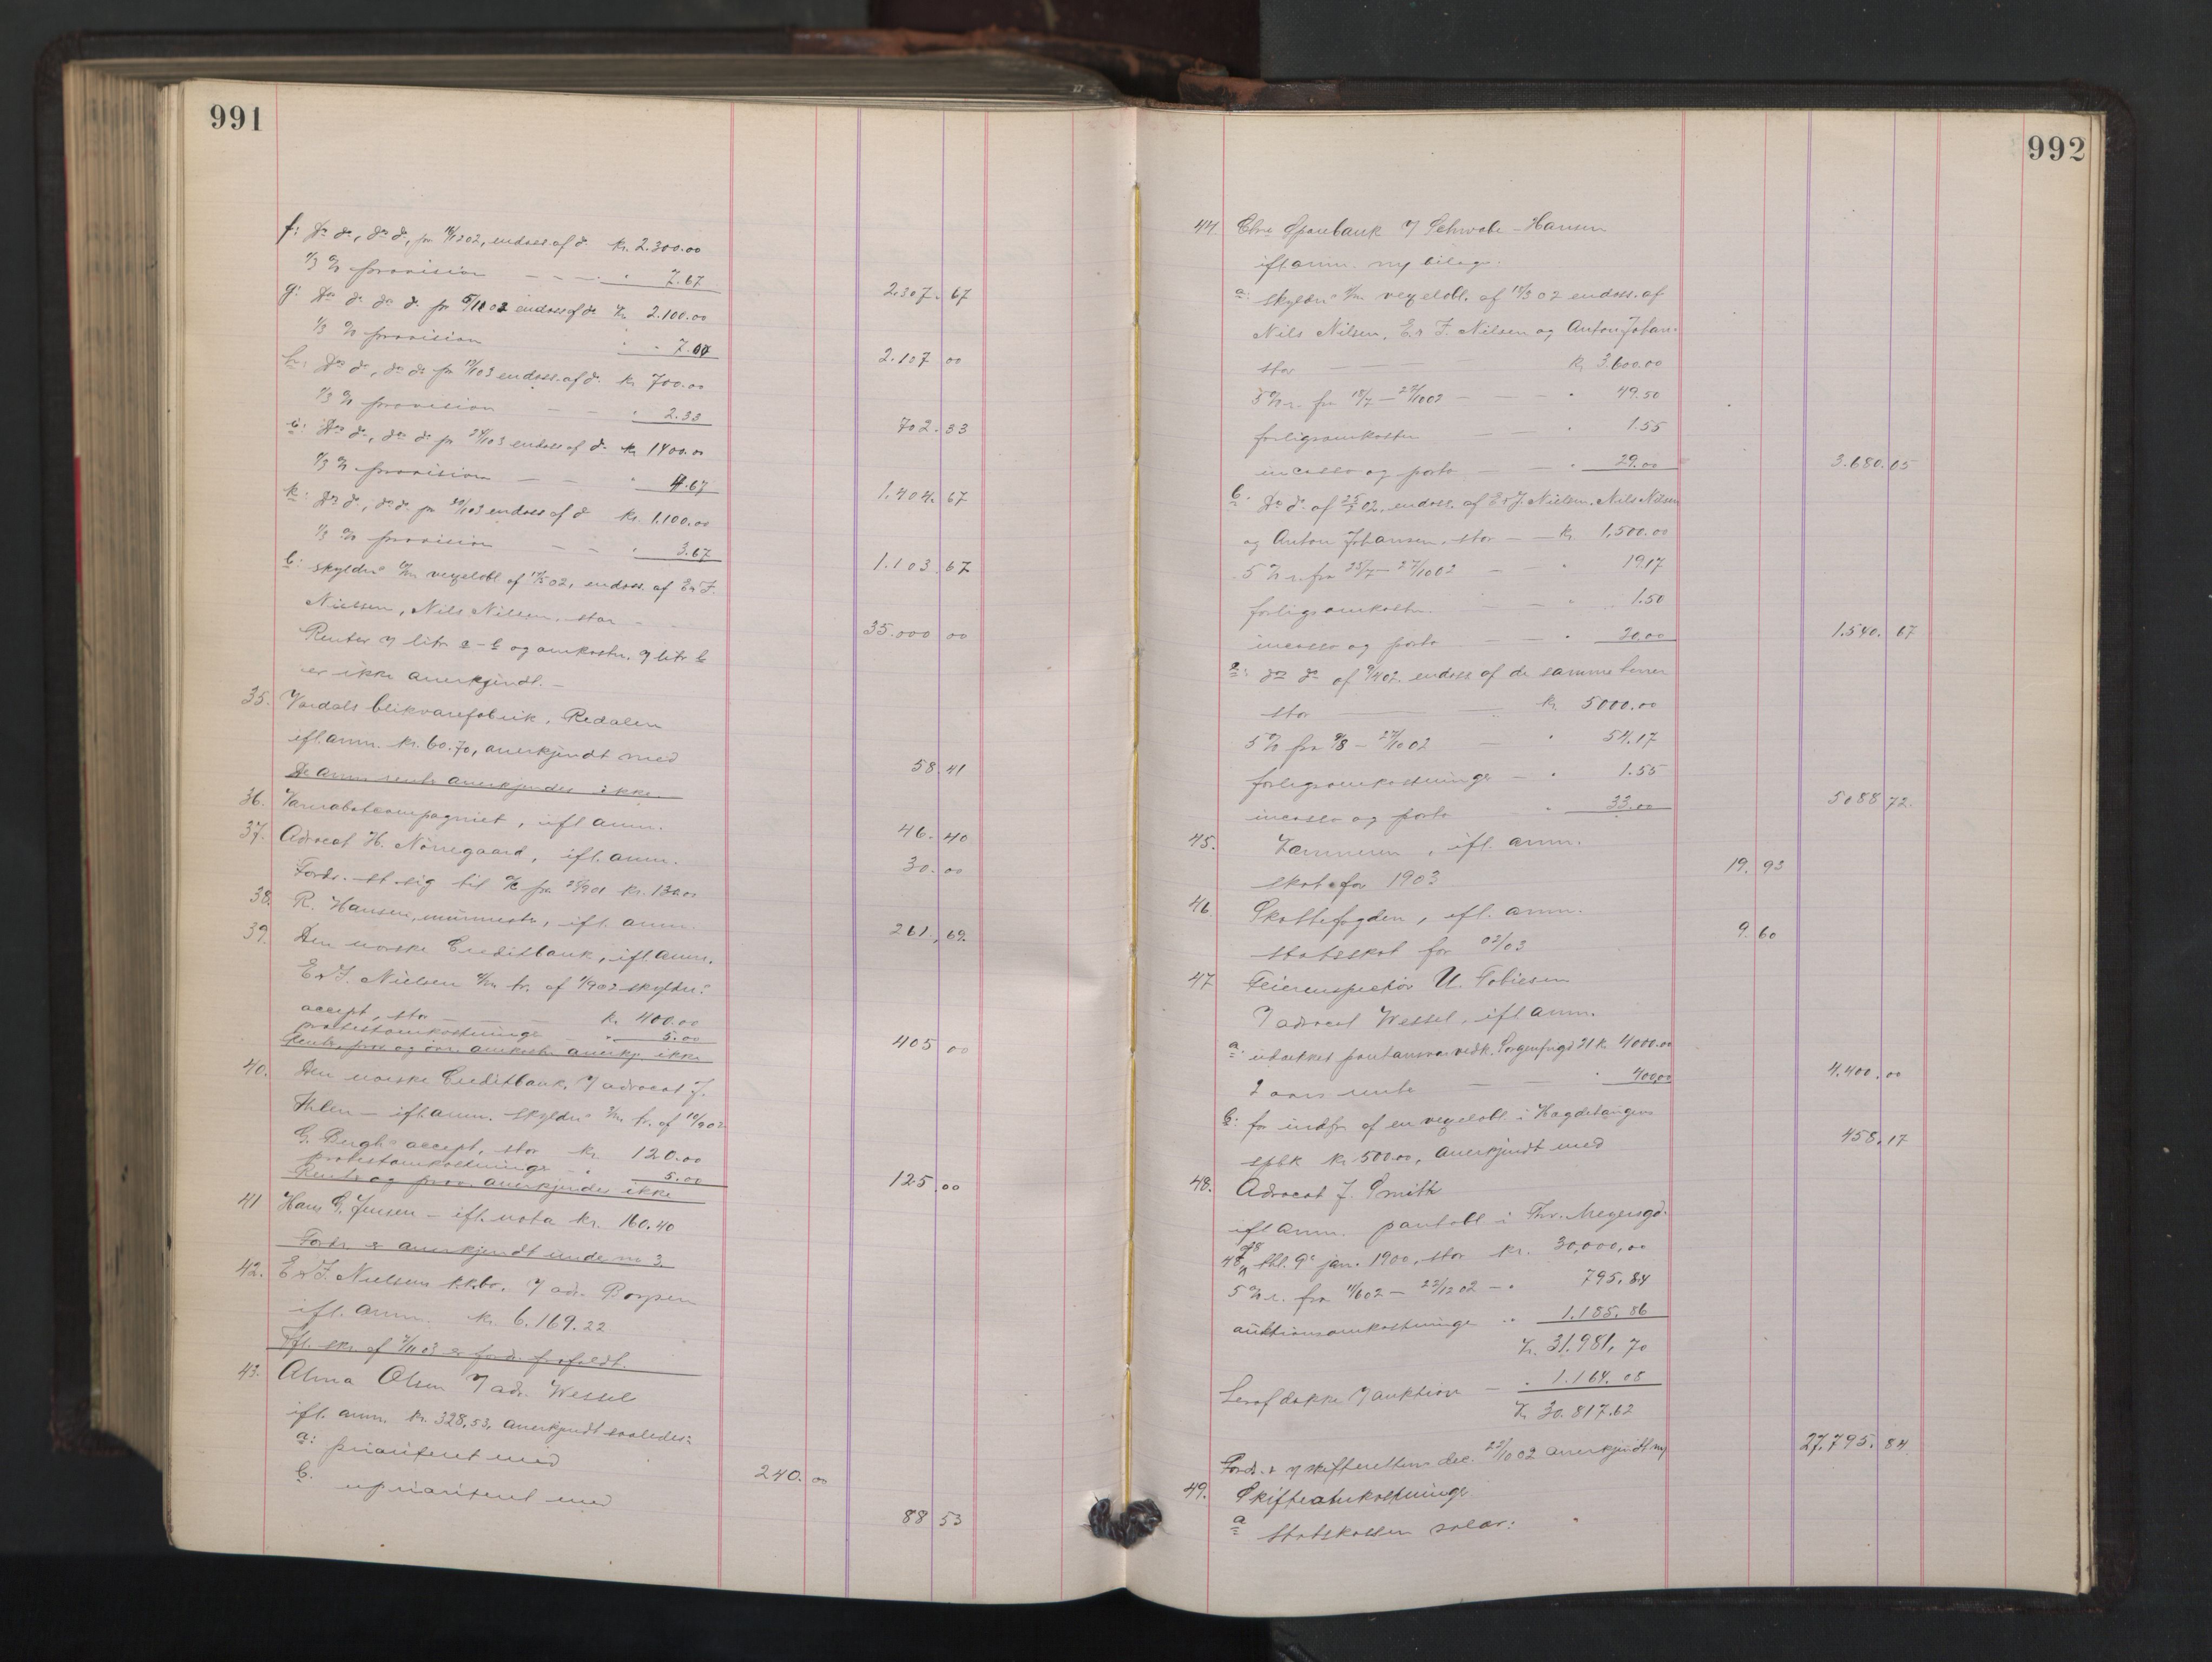 991
f: Do do, do do, pr 18/12 02, endoss af do kr. 2.300.00
1/3 % provision — — — " 7.67
2.307.67
g: Do do do do pr 5/1 03 endoss af do kr 2.100.00
1/3 % provision " " 7.00
2.107 00
h: Do do, do do pr 12/1 03 endoss. af do. kr 700.00
1/3 % provision — — " 2.33
702.33
i: Do do, do do pr 24/1 03 endoss af do kr 1400.00
1/3 % provision — — " 4.67
1.404.67
k: Do do, do do. pr 30/1 03 endoss af do kr. 1.100.00
1/3 % provision — — " 3.67
1.103.67
l: skyldn.s vexelobl af 02, endoss. af E & F.
Nielsen, Nils Nilsen, stor — —
35.000 00
Renter if litr a - l og omkostn. if litr l
er ikke anerkjendt. —
35. Vardals blikvarefabrik, Redalen
ifl. anm. kr. 60.70, anerkjendt med
58.41
De anm renter anerkjendes ikke.
36. Varnabotcompagniet, ifl anm.
46.40
37. Advocat H. Nörregaard, ifl. anm.
30.00
Fordr. st sig til
38. R. Hansen, murmester, ifl. anm.
261.69
39. Den norske Creditbank, ifl. anm.
E & F. Nielsen tr. af 02 skyldn.s
accept, stor — — — kr 400.00
protestomkostninger " 5.00
405 00
Renter, prov og övr. omkostn anerkj. ikke
40. Den norske Creditbank, if advocat J.
Ihlen — ifl anm. skyldn.s tr. af 02
G. Berghs accept, stor kr. 120.00
protestomkostninger — " 5.00
125.00
Renter og prov. anerkjendes ikke
41 Hans G. Jensen — ifl. nota kr. 160.40
Fordr. er anerkjendt under no 3.
42. E & F. Nielsens k.k.bo. if adv. Borgen
ifl. anm. kr. 6.169.22
Ifl. skr. af 03 er fordr. frafaldt.
43. Alma Olsen if adv. Wessel
ifl. anm. kr. 328,53, anerkjendt saaledes:
a: prioriteret med
240.00
b. uprioriteret med
88 53
992
44 Chra Sparebank if Schwabe-Hansen
ifl anm. mg bilage:
a: skyldn.s vexelobl. af 02 endoss. af
Nils Nilsen, E & F. Nilsen og Anton Johan-
stor — — — kr 3.600.00
5 % r. fra 18/7 — 27/10 02 — — — " 49.50
forligsomkostn — — " 1.55
incasso og porto — — " 29.00
3.680.05
b: Do do. af 02, endoss. af E & F. Nielsen, Nils Nilsen
og Anton Johansen, stor — — kr. 1,500.00
5 % r. fra 25/7 — 27/10 02 — — " 19.17
forligsomkostn. — — " 1.50
incasso og porto — — " 20.00
1.540.67
c: do do af 02. endoss af de samme
stor — — kr. 5000.00
5 % fra 9/8 — 27/10 02 — " 54.17
forligsomkostninger — " 1.55
incasso og porto " 33.00
5088 72.
45. Kæmneren, ifl. anm.
skat for 1903
19.93
46. Skattefogden, ifl. anm.
statsskat for 02/03
9.60
47 Feierinspectör U. Tobiesen
if advocat Wessel, ifl anm.
a: udækket pantansvar vedk. Sorgenfrigd 21 kr. 4000.00
2 aars rente — — " 400.00
4.400.00
b: for indfr. af en vexelobl. i Hagdehaugens
spbk kr 500.00, anerkjendt med
458.17
48. Advocat J. Smith
ifl anm. pantobl i Thv. Meyersgd.
48, thl. 9de jan. 1900, stor kr. 30,000,00
5 % r. fra 02 — 22/12 02 — " 795.84
auktionsomkostninger " " 1.185.86
kr. 31.981,70
heraf dække if auktion — " 1.164.08
kr 30.817.62
Fordr. er if skifterettens dec. 02 anerkjendt m.
27.795.84
49. Skifteomkostninger
a statskassen salær: